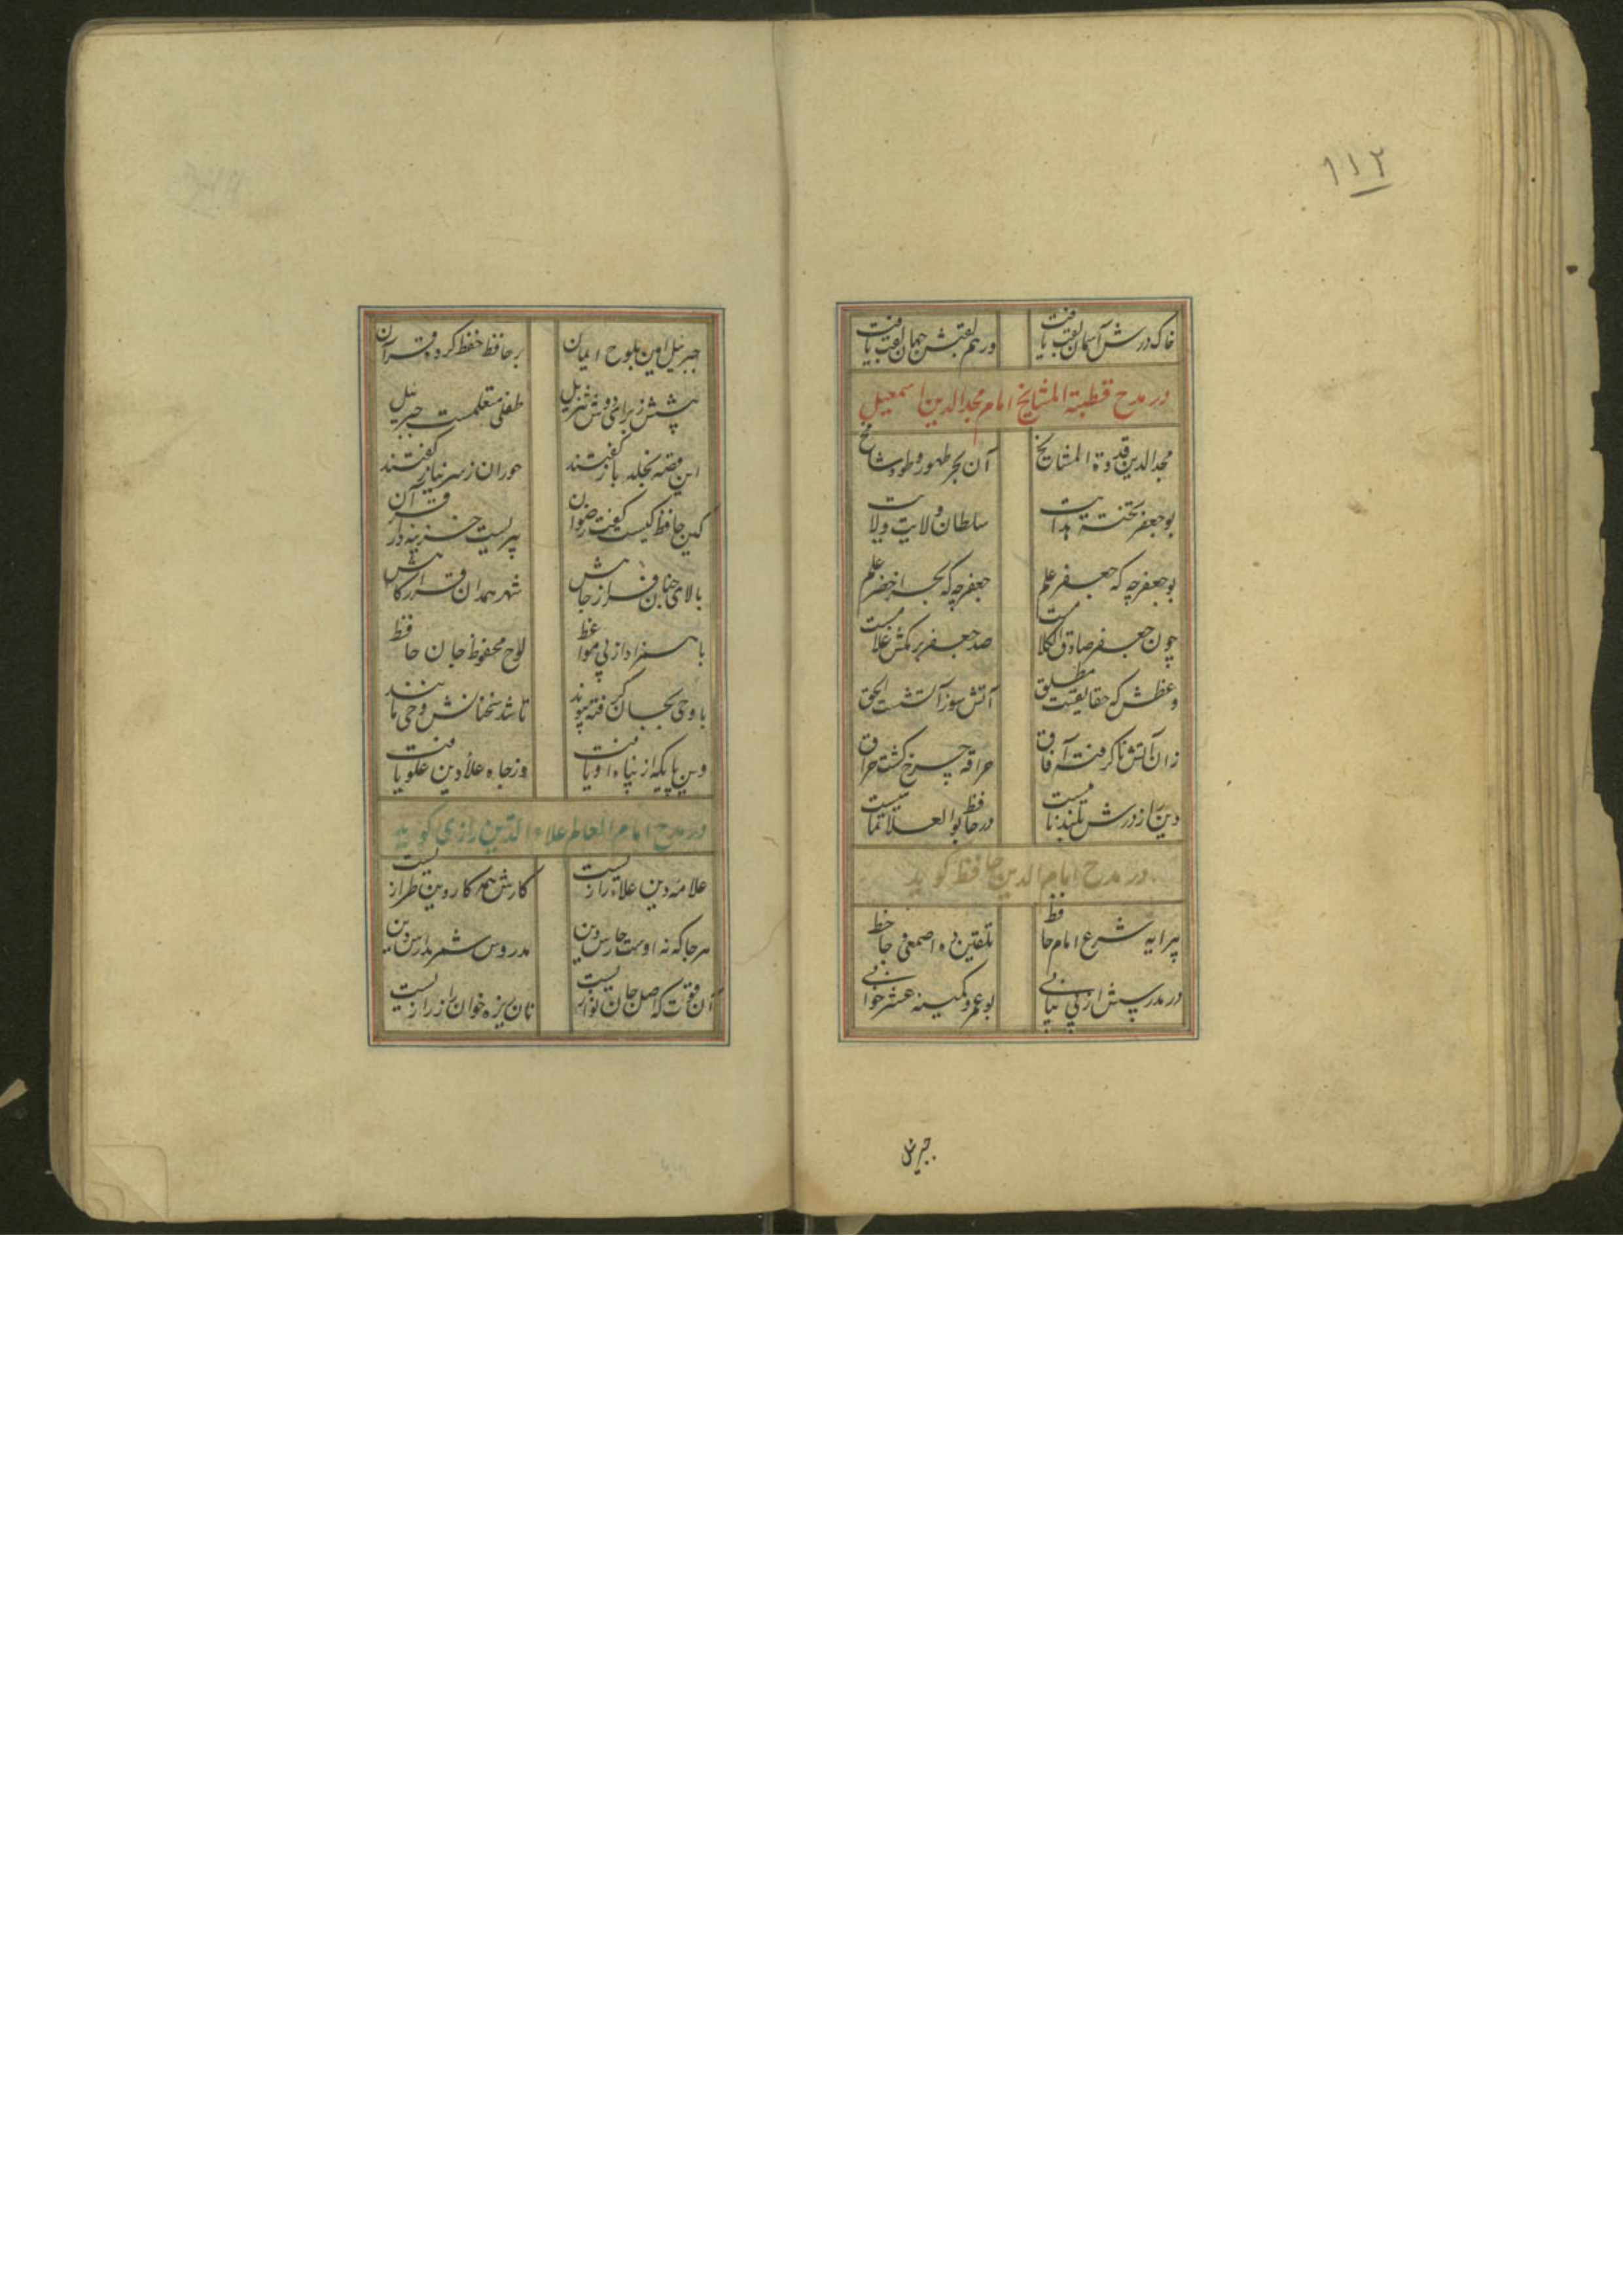 ۱۱۲
خاک درش آسمان لقب یافت
ورهم لقبش جهان لقب یافت
در مدح قطبة المشایخ امام مجدالدین اسمعیل
مجدالدین قدوة المشایخ
آن بحر طهور و طود شامخ
بوجعفر تختهٔ هدایت
سلطان ولایت ولایت
بوجعفر چه که جعفر علم
جعفر چه که بحر اخضر علم
چون جعفر صادق الکلامست
صد جعفر برمکش غلامست
وعظش که حقایقیست مطلق
آتش سوز آتشست الحق
زان آتش تا گرفت آفاق
حراقه چرخ گشت حراق
دین را ز درش بلند نامیست
در حافظ بوالعلا تمامیست
در مدح امام الدین حافظ کوید
پیرایه شرع امام حافظ
تلقین ده اصمعی و جاحظ
در مدرسش از پی
بوعمرو کمینه عشر خوانی
جبرئیل
جبرئیل امین بلوح ایمان
بر حافظ حفظ کرده قرآن
پیشش ز برای دوش تنزیل
طفلی متعلمست جبریل
این قصه بخلد باز گفتند
حوران ز سر نیاز گفتند
کین حافظ کیست گفت رضوان
پیریست خزینه دار قرآن
بالای جنان فراز جایش
شهر همدان قرارگاهش
با سفر ادا ز پی مواعظ
لوح محفوظ جان حافظ
با وحی بجان گرفته پیوند
تا شد سخنانش وحی مانند
دین پایگه از پناه او یافت
وز جاه علاء دین علو یافت
در مدح امام العالم علاء الدین رازی کوید
علامه دین علاء رازیست
کارش همه کار دین طرازیست
هر جا که نه اوست حارس دین
مدروس شمر مدارس دین
آن قوت که اصل جان نوازیست
نان ریزه خوان راز رازیست